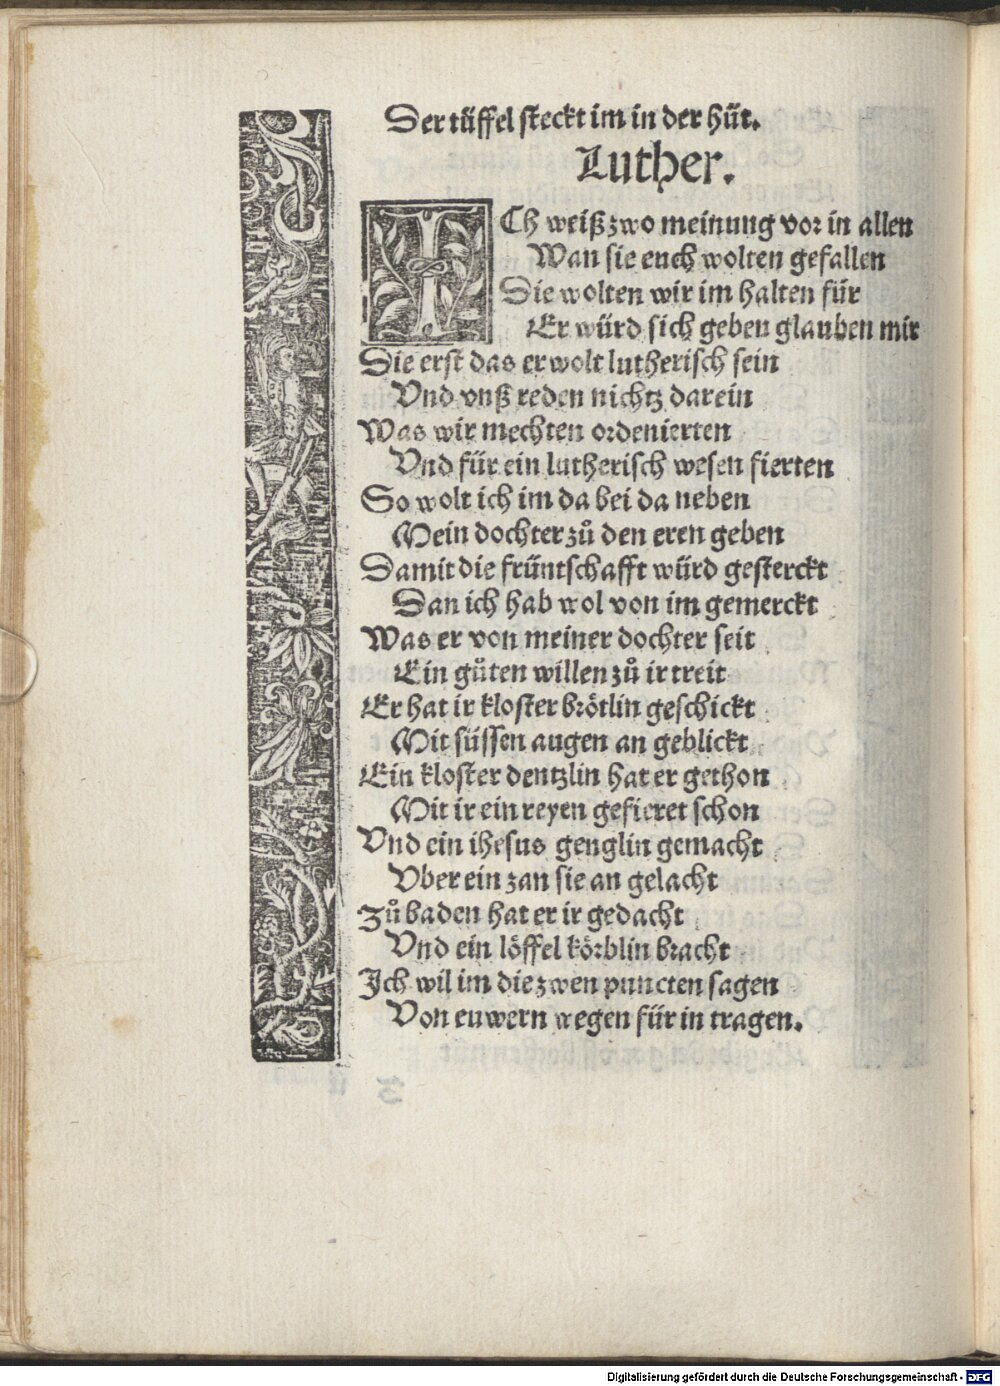 Der tüffel steckt im in der hüt.
Luther.
ICh weiß zwo meinung vor in allen
Wan sie euch wolten gefallen
Die wolten wir im halten für
Er würd sich geben glauben mir
Die erst das er wolt lutherisch sein
Vnd vnß reden nichtz darein
Was wir mechten ordenierten
Vnd für ein lutherisch wesen fierten
So wolt ich im da bei da neben
Mein dochter zů den eren geben
Damit die früntschafft würd gesterckt
Dan ich hab wol von im gemerckt
Was er von meiner dochter seit
Ein gůten willen zů ir treit
Er hat ir kloster brötlin geschickt
Mit süssen augen an geblickt
Ein kloster dentzlin hat er gethon
Mit ir ein reyen gefieret schon
Vnd ein ihesus genglin gemacht
Vber ein zan sie an gelacht
Zů baden hat er ir gedacht
Vnd ein löffel körblin bracht
Ich wil im die zwen puncten sagen
Von euwern wegen für in tragen.
Digitalisierung gefördert durch die Deutsche Forschungsgemeinschaft - DFG